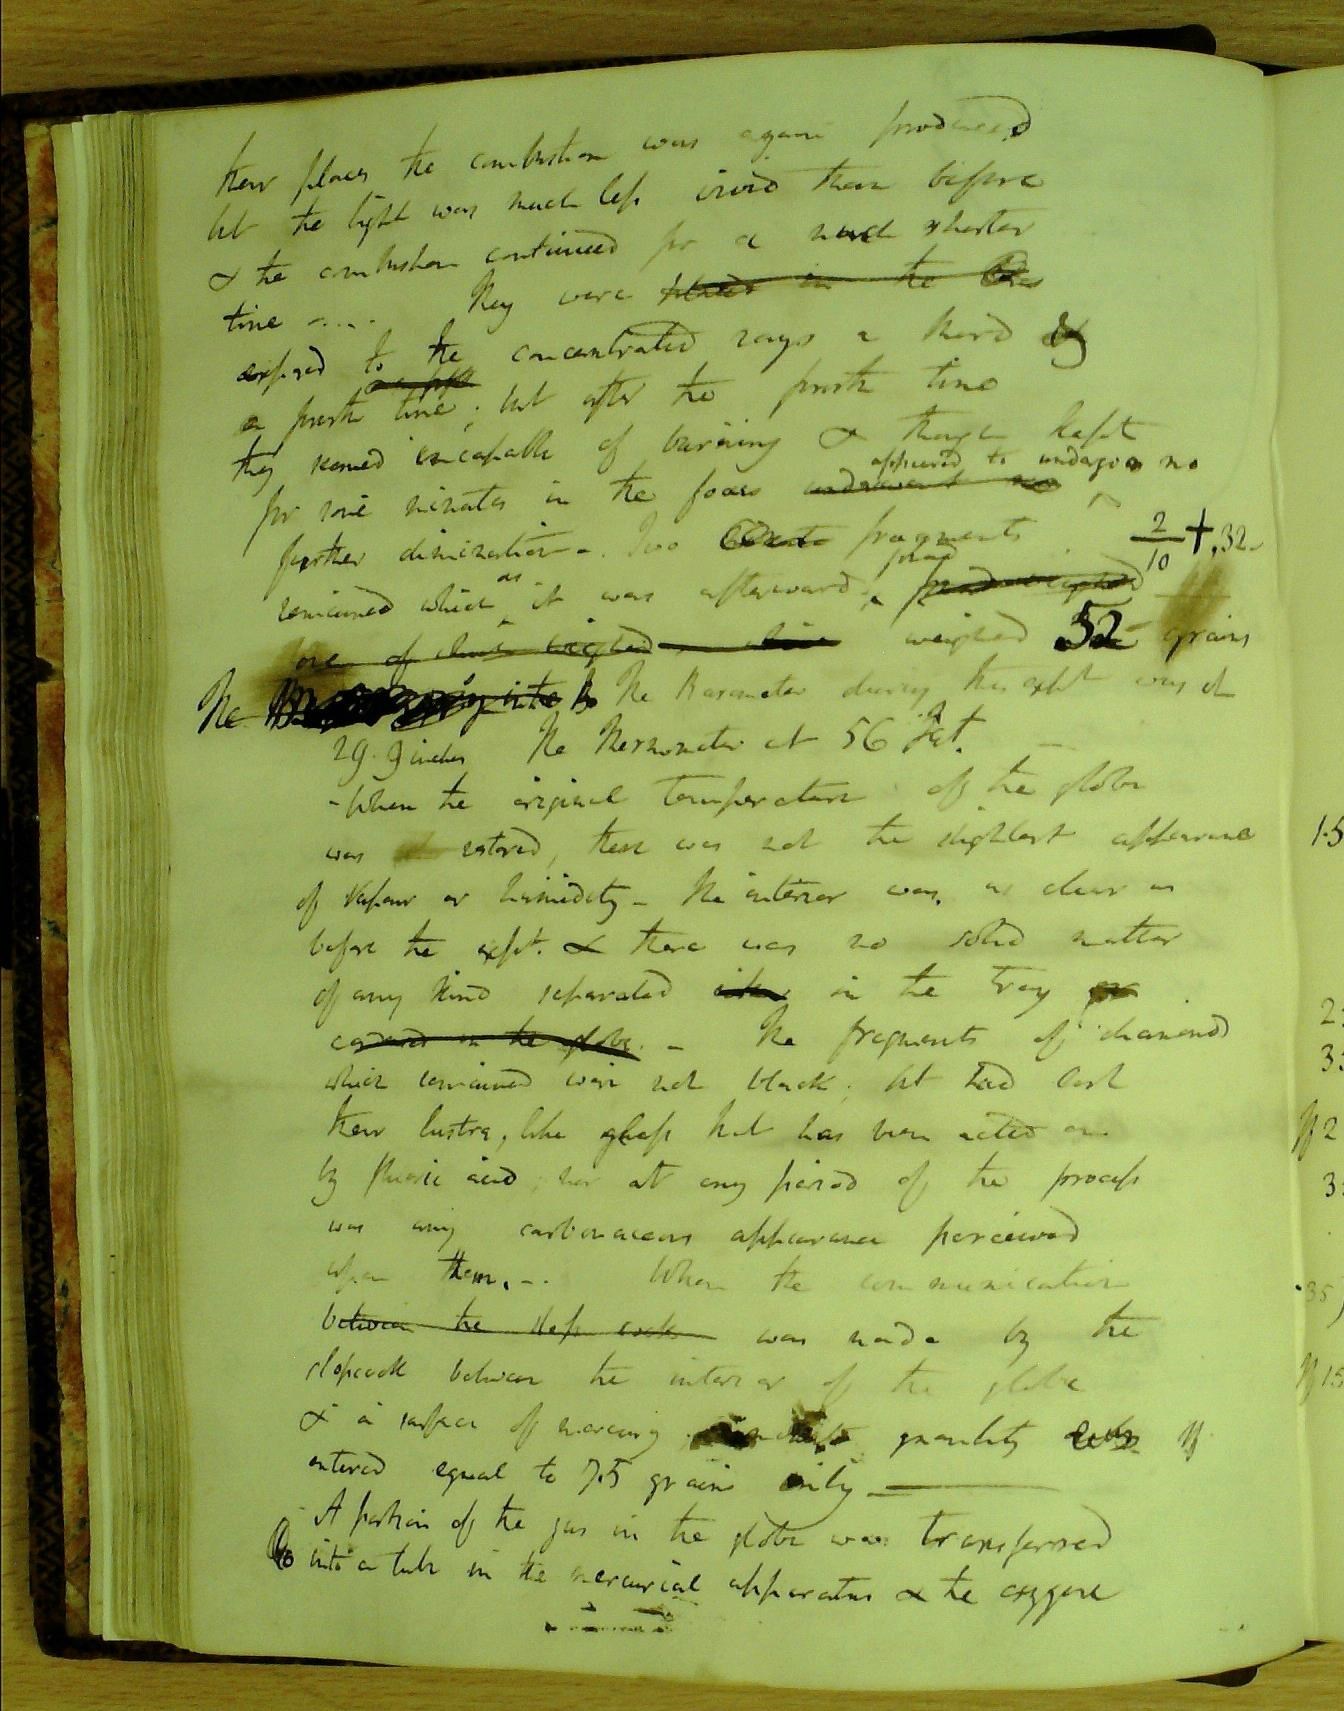 their places the combustion was again produced
but the light was much less vivid than before
& the combustion continued for a much shorter
time ....  They were placed in the
exposed to the concentrated rays a third &
a fourth time; but after the fourth time
they seemed incapable of burning & though kept
appeared to undergo no
for some minutes in the focus underwent no
further diminution -. Two fragments 2/10 + .32
remained which as it was afterwards found
one of them weighed weighed 52 grains
The The Barometer during this expt was at
29.9 inches The Thermometer at 56 Fat.
- When the original temperature of the globe
was restored, there was not the slightest appearance
of vapour or humidity - The interior was as clear as
before the expt. & there was no solid matter
of any kind separated either in the tray or
in the globe. - The fragments of diamond
which remained were not black; but had lost
their lustre, like glass that has been acted on
by fluoric acid; nor at any period of the process
was any carbonaceous appearance perceived
upon them. - . When the communication
between the stop cock was made by the
stopcock between the interior of the globe
& a surface of mercury quantity
entered equal to 7.5 grains only —
A portion of the gas in the globe was transferred
into a tube in the mercurial apparatus & the oxygene
1.5
2
3
2
3
35
15